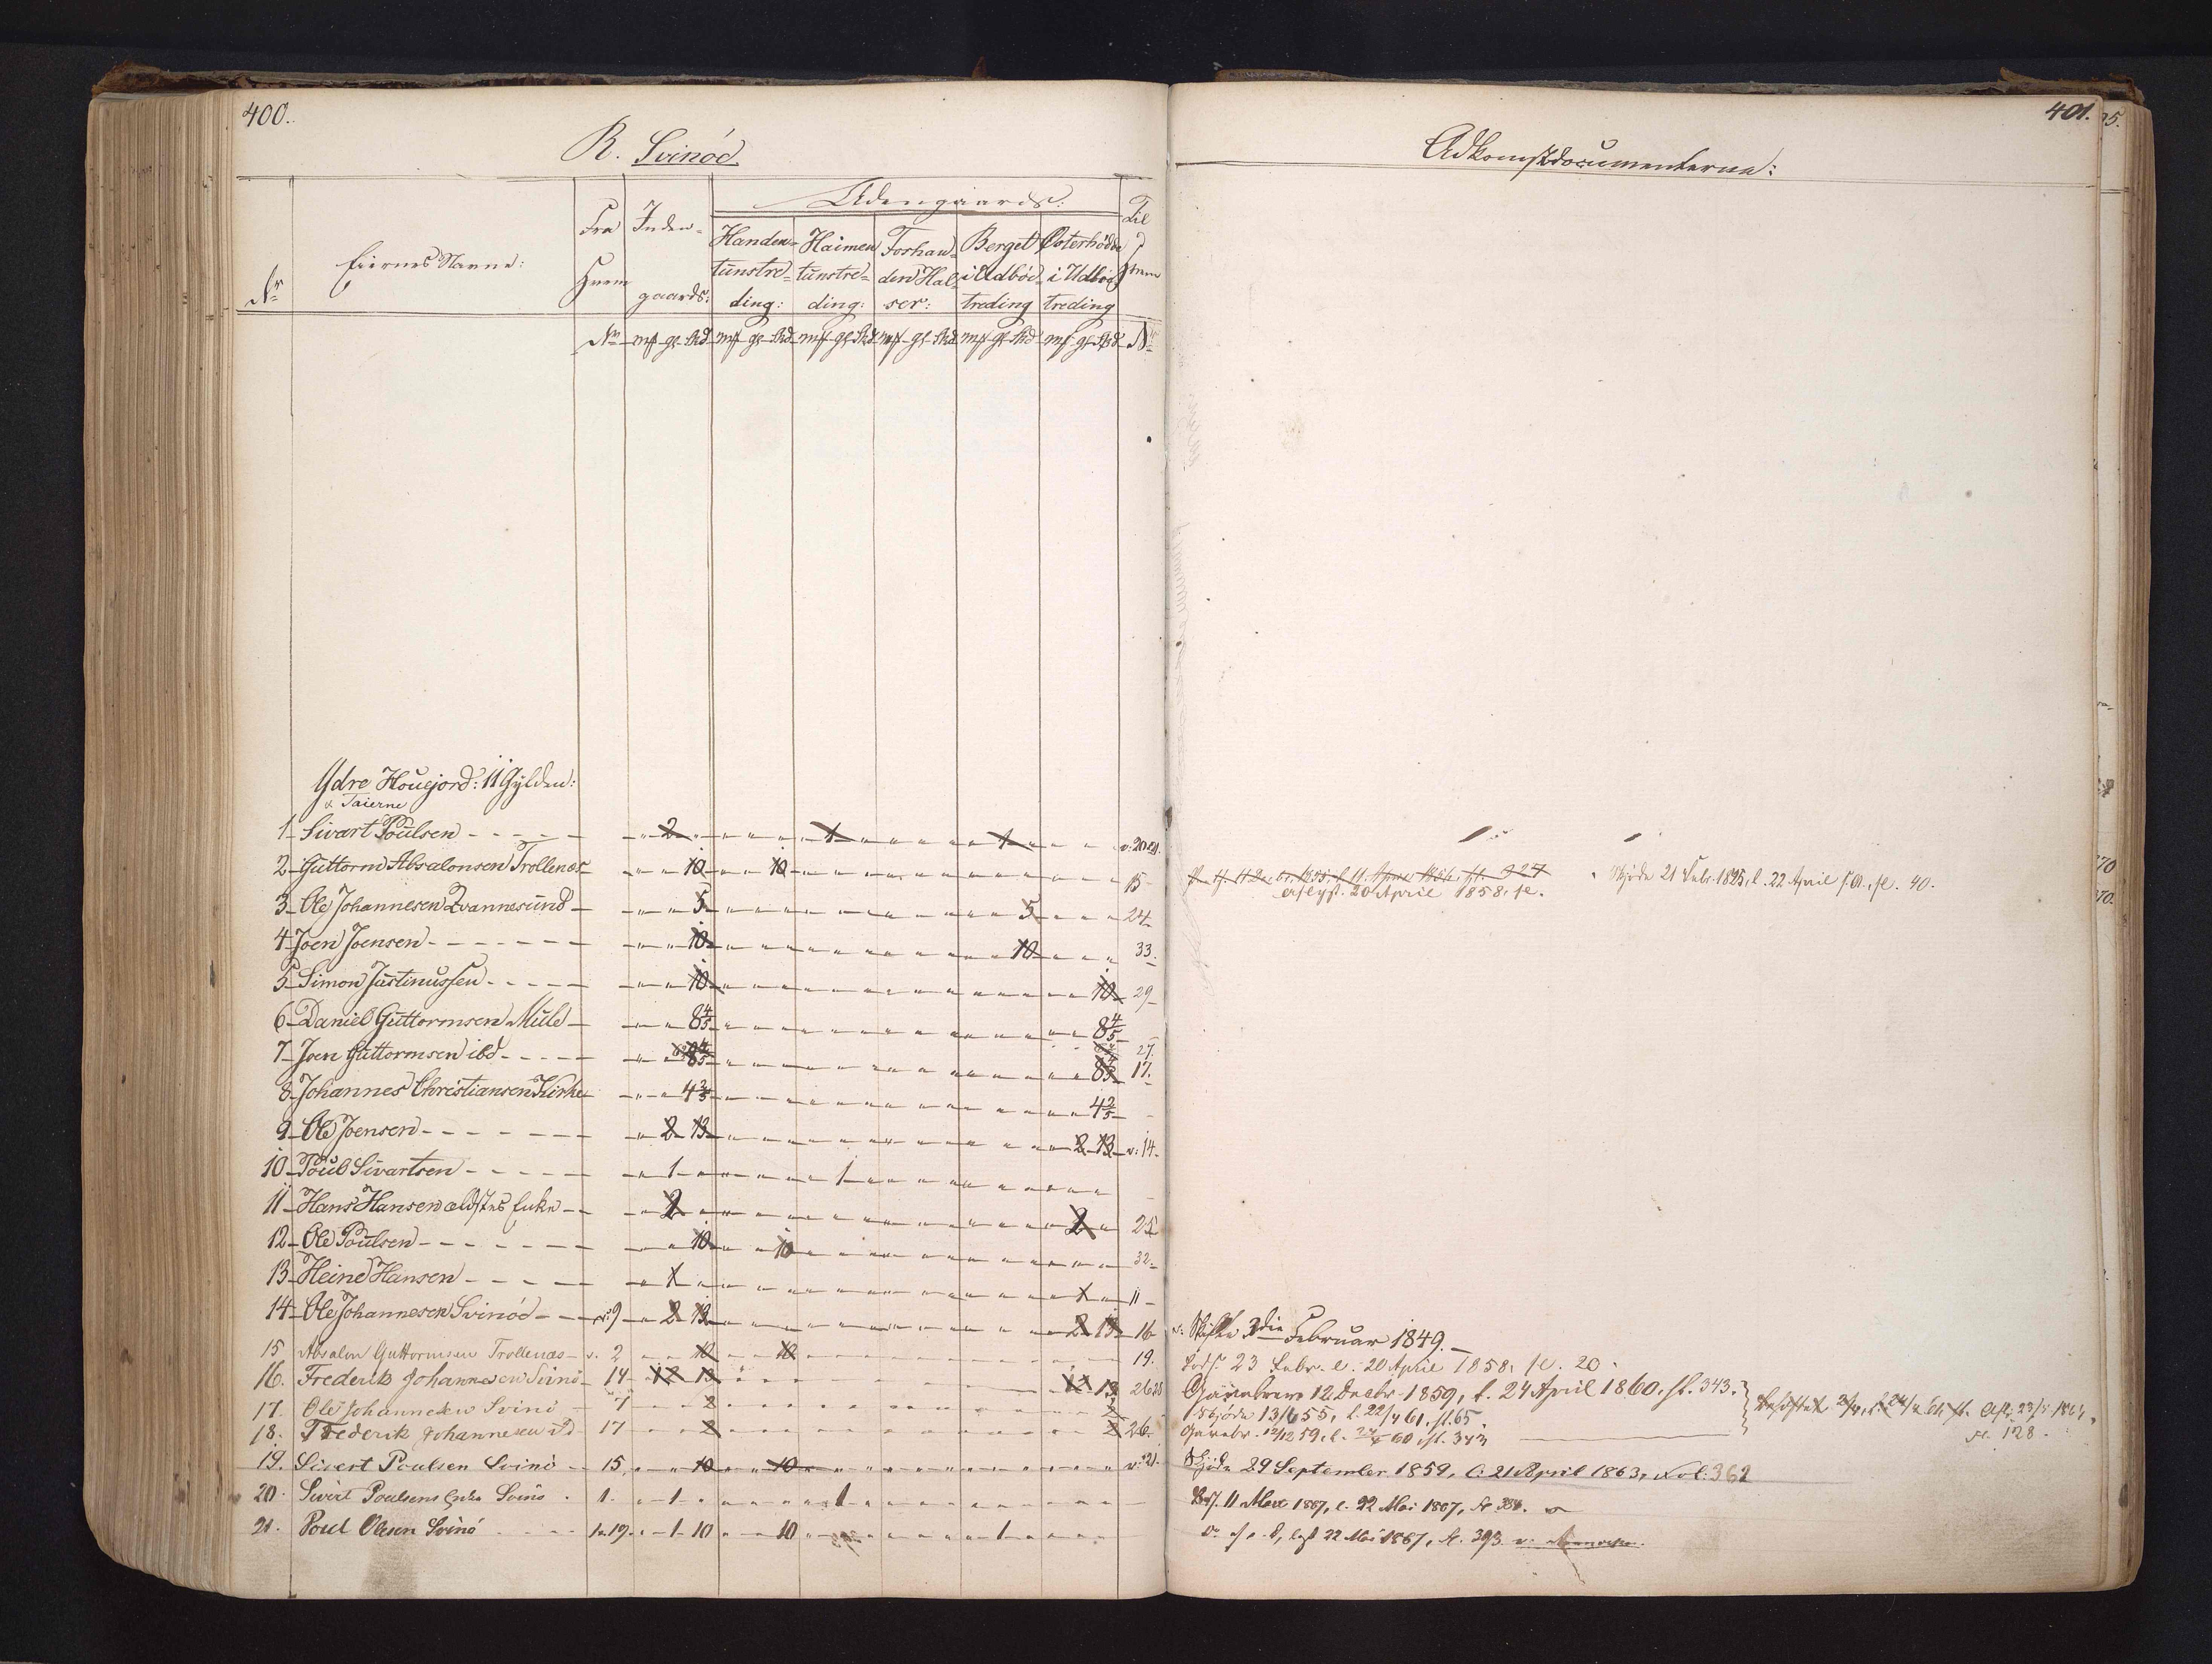 400.
R. Svinöe.
Udengaards:
Nr
Eiernes Navne:
Fra
Inden-
gaards:
Handen-
tunstre-
ding:
Haimen
tunstre-
ding:
Forhan-
den Hal-
ser:
Berget
i Udböe
treding
Østerhödde
i Udböe
treding
Til
No mf gl skd mf gl skd mf gl skd mf gl skd mf gl skd mf gl skd No
Ydre Houejord: 11 Gylden:
Taierne
1 Sivart Poulsen 2 1 1 v: 20
2 Guttorm Absalonsen Trollenæs 10 10 15
3 Ole Johannesen Qvannesund 5 5 24
4 Joen Joensen 10 10 33
5 Simon Justinussen 10 10 29
6 Daniel Guttormsen Mule 8 4/5 8 4/5
27
7 Joen Guttormsen ibd 8 4/5 8 4/5 17.
8 Johannes Christiansen Kirke 4 2/5 4 2/5
9 Ole Joensen 2 13 2 13 v: 14
10 Poul Sivartsen 1 1
11 Hans Hansen ældstes Enke 2 2 25
12 Ole Poulsen 10 10 32
13 Heine Hansen 1 1 11
14 Ole Johannesen Svinöe 9 2 13 2 13 16
15 Absalon Guttormsen Trollenæs v. 2 10 10 19.
16. Frederik Johannesen Svinö 14 12 13 12 13 26
17. Ole Johannesen Svinö 7 2 2
18. Frederik Johannesen 17 2 2 26.
19. Sivert Poulsen Svinö 15 10 10 v: 21.
20. Sivert Poulsens Enke Svinö 1. 1 1
21. Poul Olesen Svinö 1 & 19. 1 10 10 1
401.
Adkomstdocumenterne:
11. April
Skjöde 21 Febr. 1825, l. 22 April fl. 40.
aflyst. 20 April 1858. fl.
v: Skifte 3die Februar 1849.
23 Febr. l. 20 April 1858. fl. 20.
Gavebrev 12 Decbr. 1859, l. 24 April 1860. fl. 343.
Skjöde 13/6 55, l. 22/4 61, fl. 65.
fl. 128.
Gavebr. 12/12 59, l. 24/4 60 fl. 343
Skjöde 29 September 1859, l. 21 April 1863, Fol: 362
11 Mai 1867, l. 22 Mai 1867, fl. 384.
22 Mai 1867, fl. 393